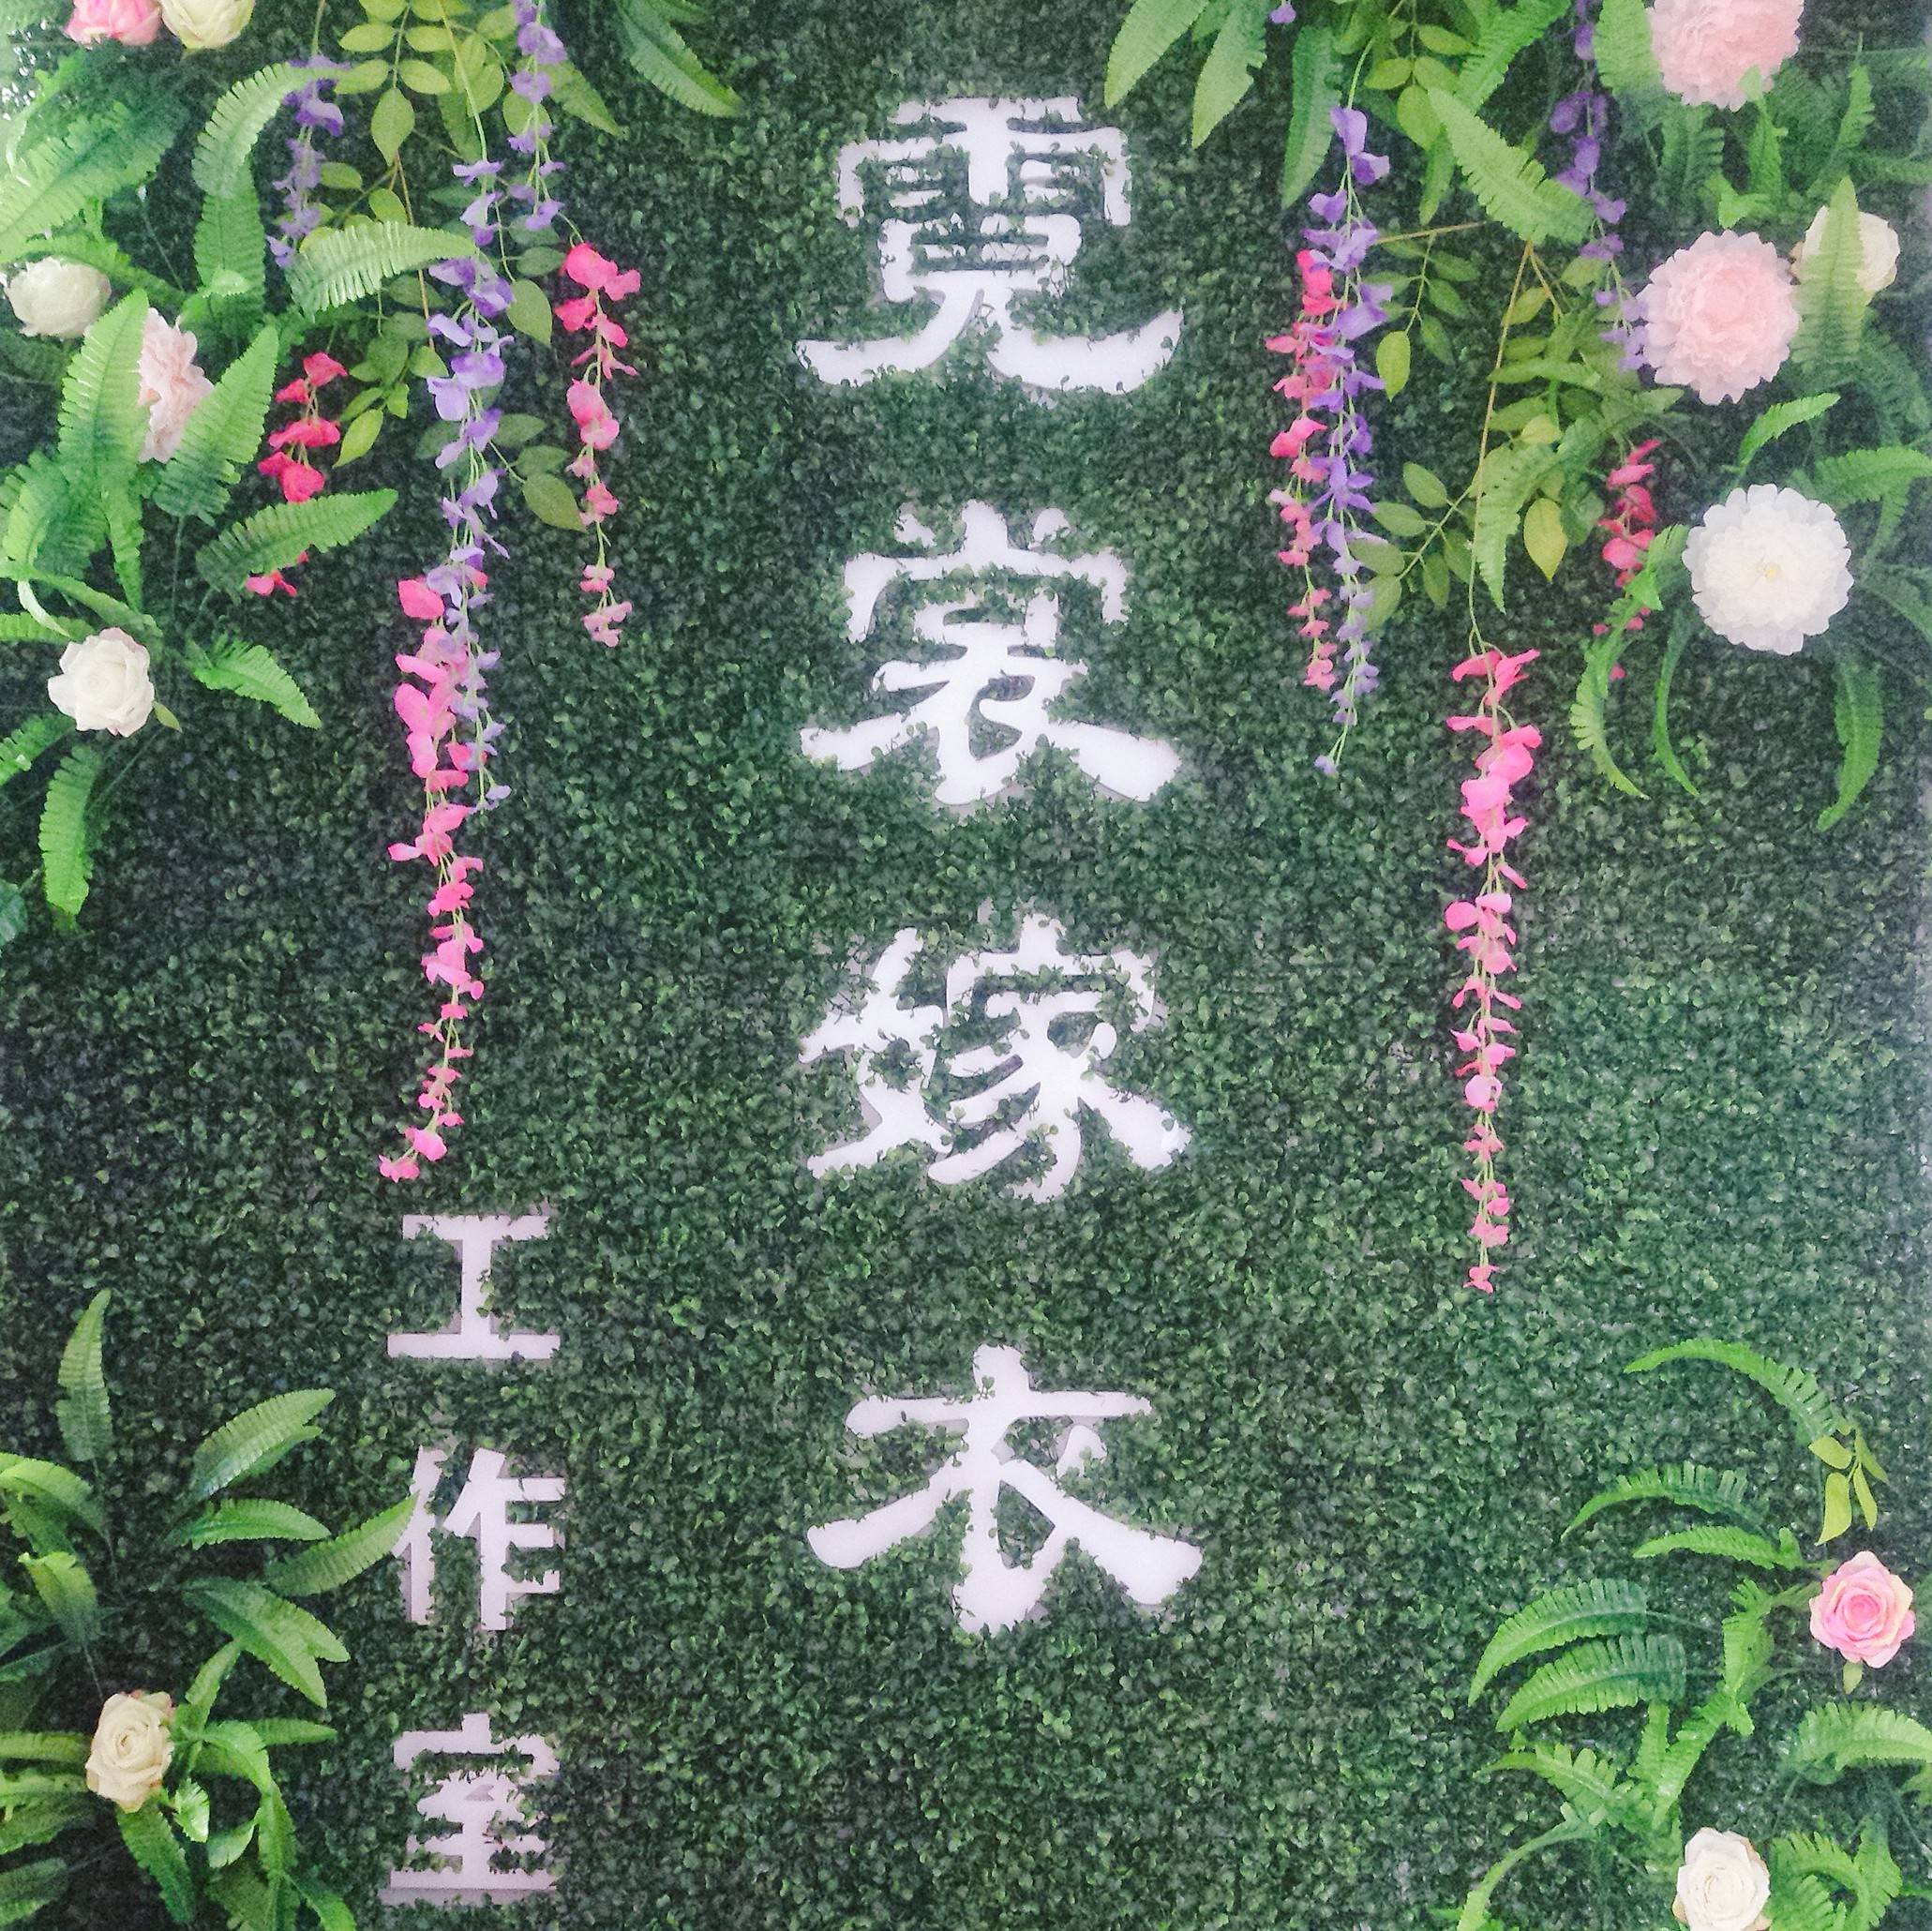 霓裳嫁衣
工作室